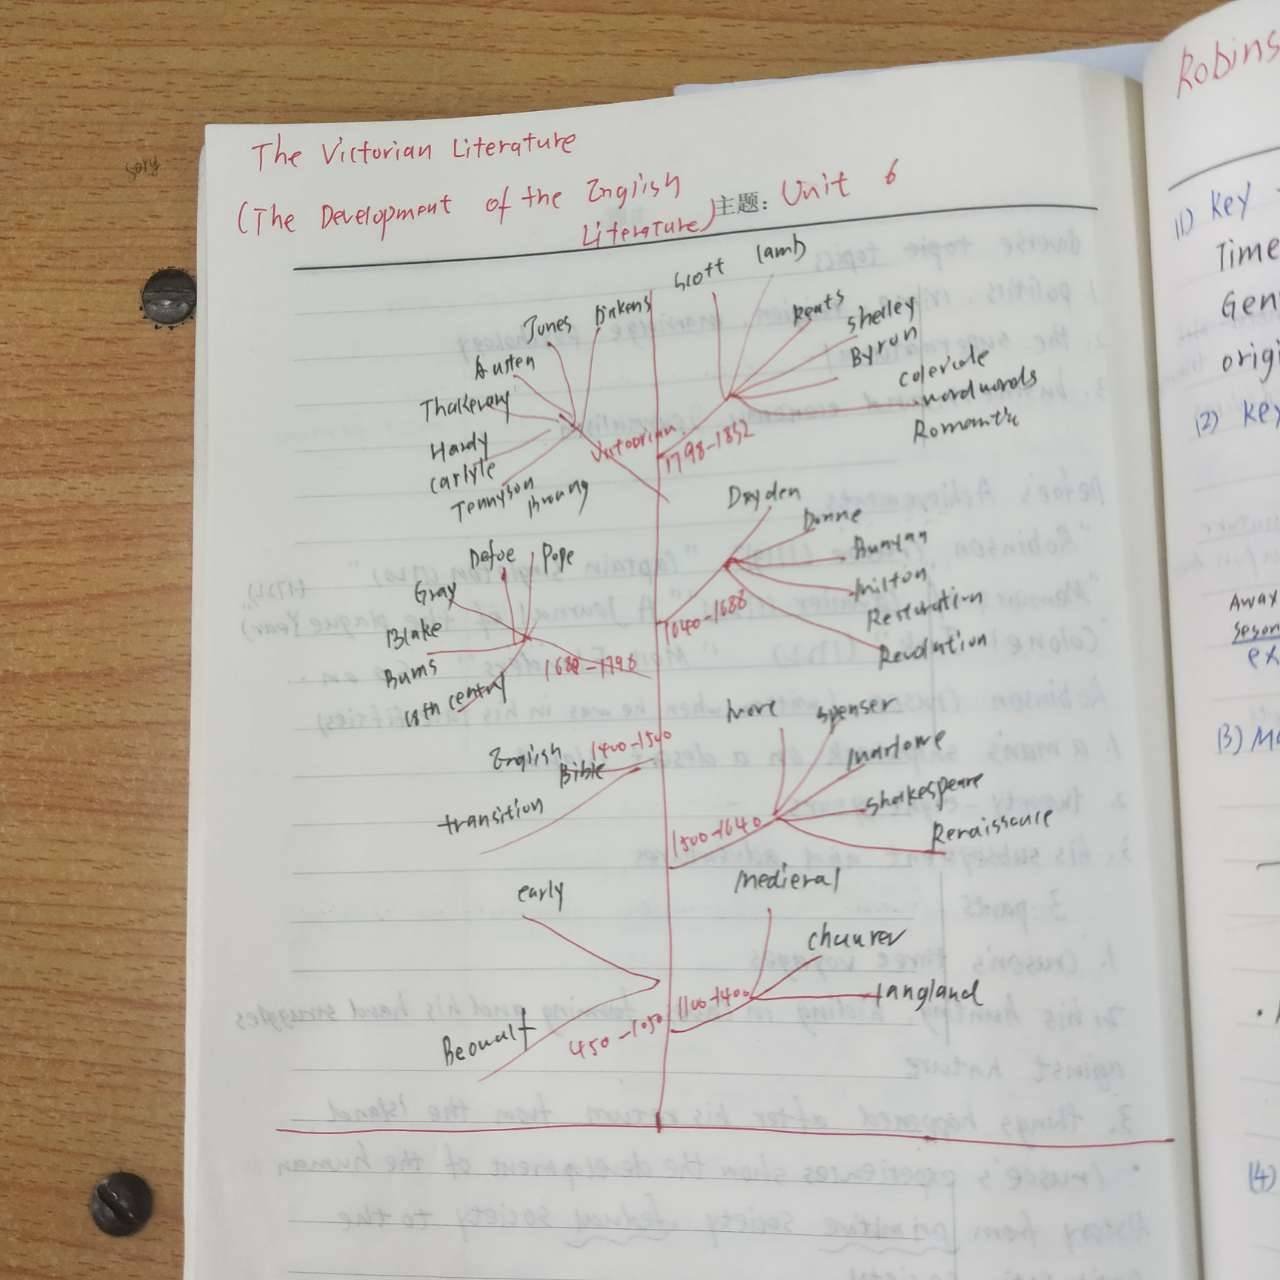 The Victorian Literature
(The Development of the English
Literature)
主题: Unit 6
Scott
Lamb
Keats
Shelley
Byron
Coleride
wordwords
Romantic
1798-1832
Dickens
Jones
Austen
Thakerary
Hardy
Carlyle
Tennyson
Victorian
Dryden
Donne
Bunyan
milton
Restoration
Revolution
1640-1688
Defoe
Pope
Gray
Blake
Burns
18th centry
1688-1798
More
Spenser
Marlowe
shakespeare
Renaissance
1500-1640
English
Bible
1400-1500
transition
early
Beowulf
450-1050
Medieval
Langland
1100-1400
Robins
(1) Key
Time
Gen
origi
(2) Key
Away
ex
(3) Ma
(4)